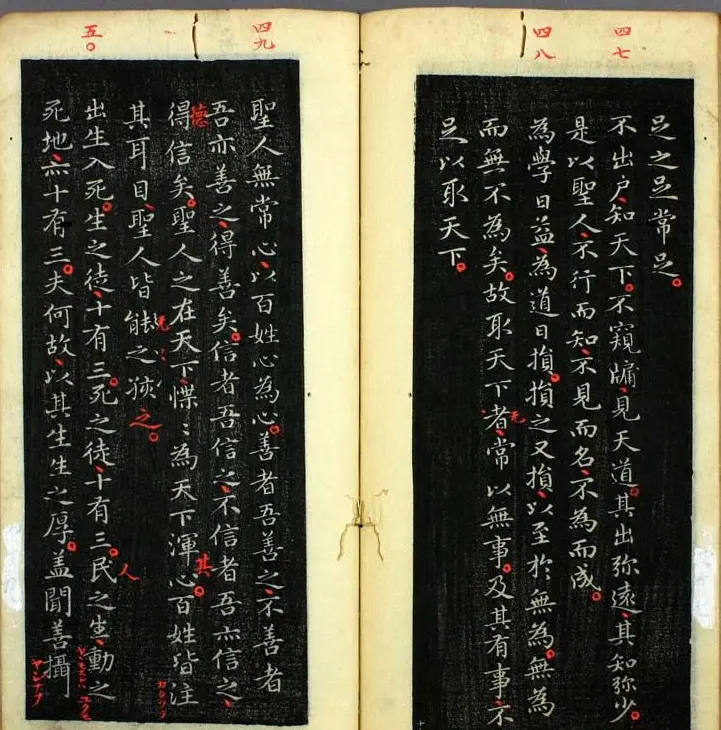 四七
四八
足之足常足。
不出户、知天下。不窺牖、見天道。其出弥遠、其知弥少。
是以聖人、不行而知、不見而名、不為而成。
為學日益、為道日損。損之又損、以至於無為。無為
而無不為矣。故取天下者、常以無事。及其有事、不
无
足以取天下。
四九
五〇
聖人無常心、以百姓心為心。善者吾善之、不善者
吾亦善之、得善矣。信者吾信之、不信者吾亦信之、
德
得信矣。聖人之在天下、惵〻為天下渾心百姓皆注
其。
其耳目、聖人皆能之孩之。
出生入死。生之徒、十有三。死之徒、十有三。民之生、動之
人
死地、亦十有三。夫何故、以其生生之厚。盖聞善攝